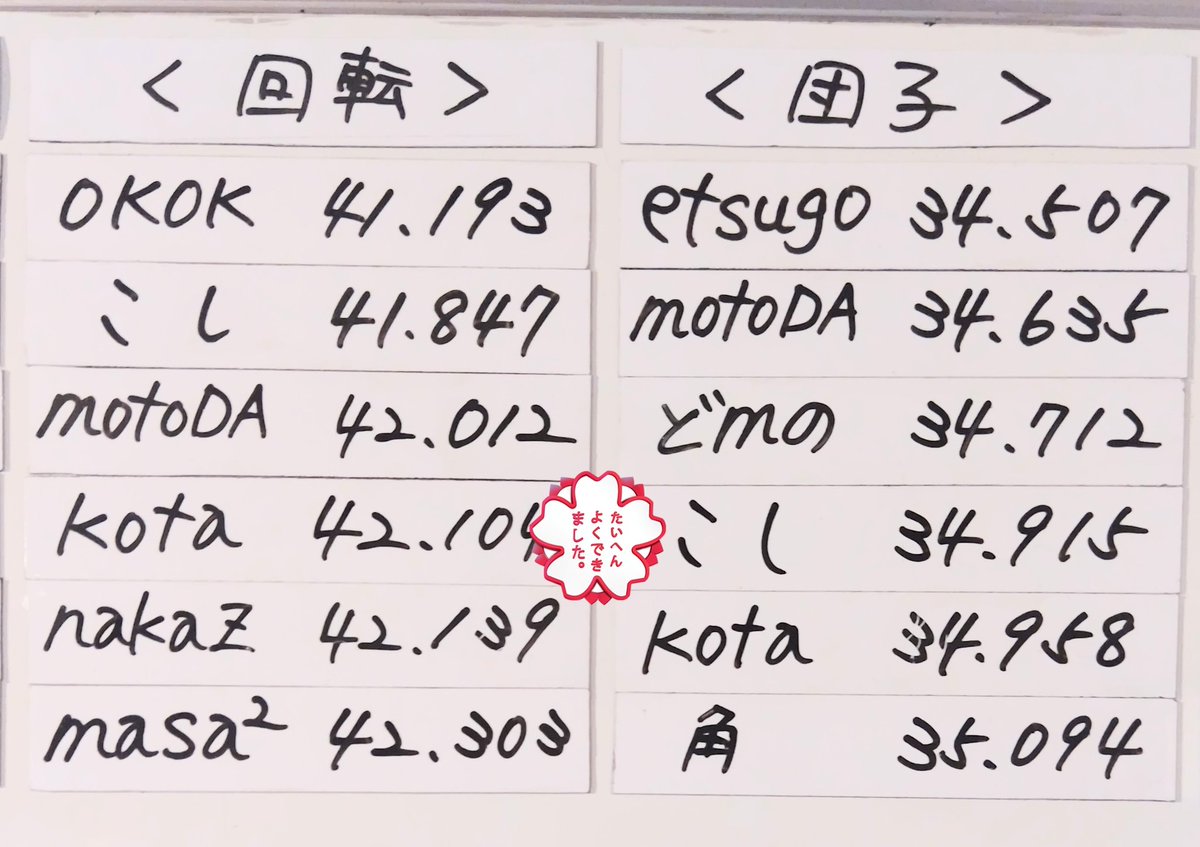 <回転>
OKOK 41.193
こし 41.847
motoDA 42.012
kota 42.104
nakaz 42.139
masa² 42.303
<団子>
etsugo 34.507
motoDA 34.635
どmの 34.712
こし 34.915
kota 34.958
角 35.094
たいへん
よくでき
ました。